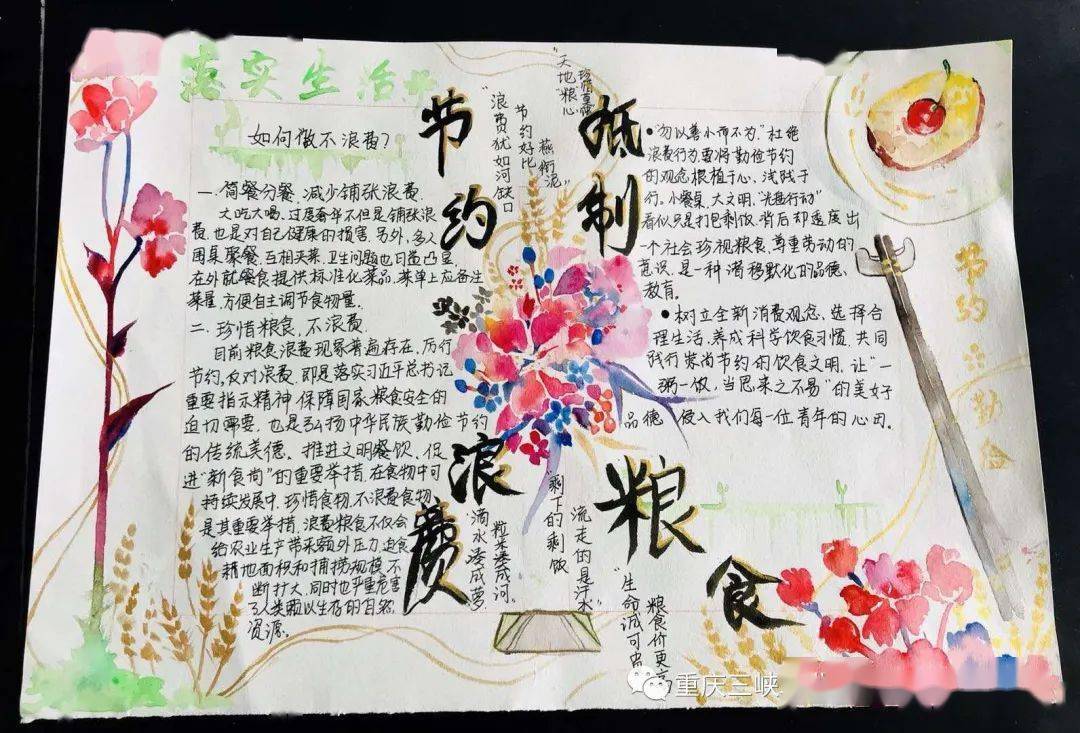 落实生活
如何做不浪费?
一.简餐分餐,减少铺张浪费.
大吃大喝,过度奢华不但是铺张浪
费,也是对自己健康的损害.另外,多人
围桌聚餐,互相夹菜,卫生问题也日益凸显.
在外就餐食提供标准化菜品,菜单上应备注
菜量,方便自主调节食物量.
二.珍惜粮食,不浪费.
目前粮食浪费现象普遍存在,厉行
节约,反对浪费,即是落实习近平总书记
重要指示精神,保障国家粮食安全的
迫切需要,也是弘扬中华民族勤俭节约
的传统美德,推进文明餐饮,促
进"新食尚"的重要举措.在食物中可
持续发展中,珍惜食物,不浪费食物,
是其重要举措.浪费粮食不仅会
给农业生产带来额外压力,迫食
耕地面积和捕捞规模不
断扩大,同时也严重危害
了人类赖以生存的自然
资源。
节约
浪费
抵制
粮食
"浪费犹如河缺口
节约好比
燕衔泥"
"天地"粮"心
珍惜至极"
●"勿以善小而不为."杜绝
浪费行为,要将勤俭节约
的观念根植于心、浅践于
行。小餐桌,大文明,"光盘行动"
看似只是打包剩饭,背后却透底出
一个社会珍视粮食、尊重劳动的
意识,是一种潜移默化的品德、
教育。
●树立全新消费观念、选择合
理生活、养成科学饮食习惯,共同
践行崇尚节约的饮食文明,让"一
粥一饭,当思来之不易"的美好
品德,侵入我们每一位青年的心田。
节约
勤俭
"滴水凑成萝
粒米凑成河。
"剩下的剩饭
流走的是汗水"
"生命诚可贵
粮食价更高
重庆三峡